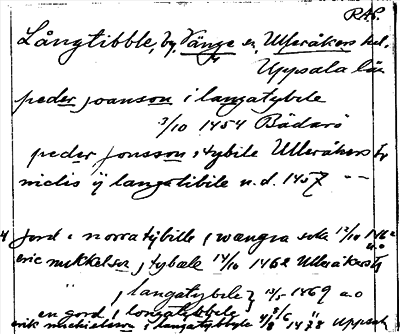 RAP.
Långtibble, by, Vänge sn, Ulleråkers hd,
Uppsala län
peder joanson i langatybile
3/10 1454 Bädarö
peder jonsson, tybile Ulleråkers
niclis ij langatibile u.d. 1457 — —
4 jord i norratybille, wængia sokn 12/10 1462
eric mikkelson, tybæle 14/10 1462 Ulleråkers
" , langatybile 13/5 1469 a.o
en gord, longatybble,
erik michielson, langatybyle 1478